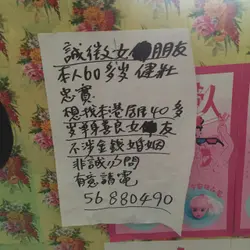 誠徵女朋友
本人60多岁健壯
忠實
想找本港居民40多
岁单身善良女友
不涉金銭婚姻
非誠勿問
有意請電
56880490
人